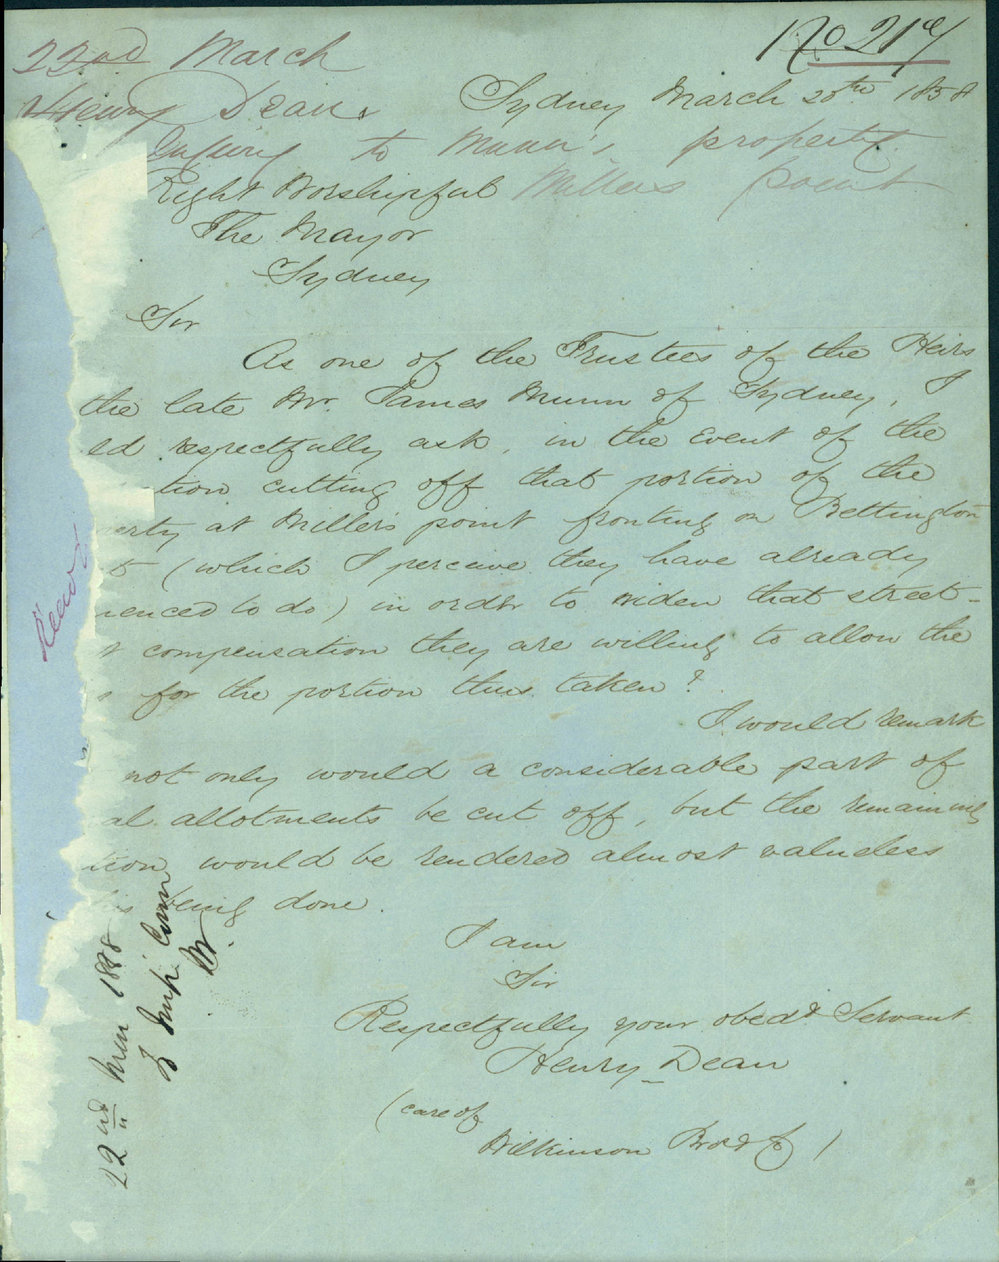 No 219
22nd March
Henry Dean
Sydney March 20th 1858
to Munn's property
Millers point
Right Worshipful
The Mayor
Sydney
Sir
As one of the Trustees of the Heirs
the late Mr. James Munn of Sydney, I
ld respectfully ask, in the Event of the
tion cutting off that portion of the
erty at Miller's point fronting on Bettington
t (which I perceive they have already
menced to do) in order to widen that street -
t compensation they are willing to allow the
s for the portion thus taken?
I would remark
not only would a considerable part of
al allotments be cut off, but the remaining
tion would be rendered almost valueless
his being done.
I am
Sir
Respectfully your obedt Servant
Henry Dean
(care of
Wilkinson Bros & Co)
22nd